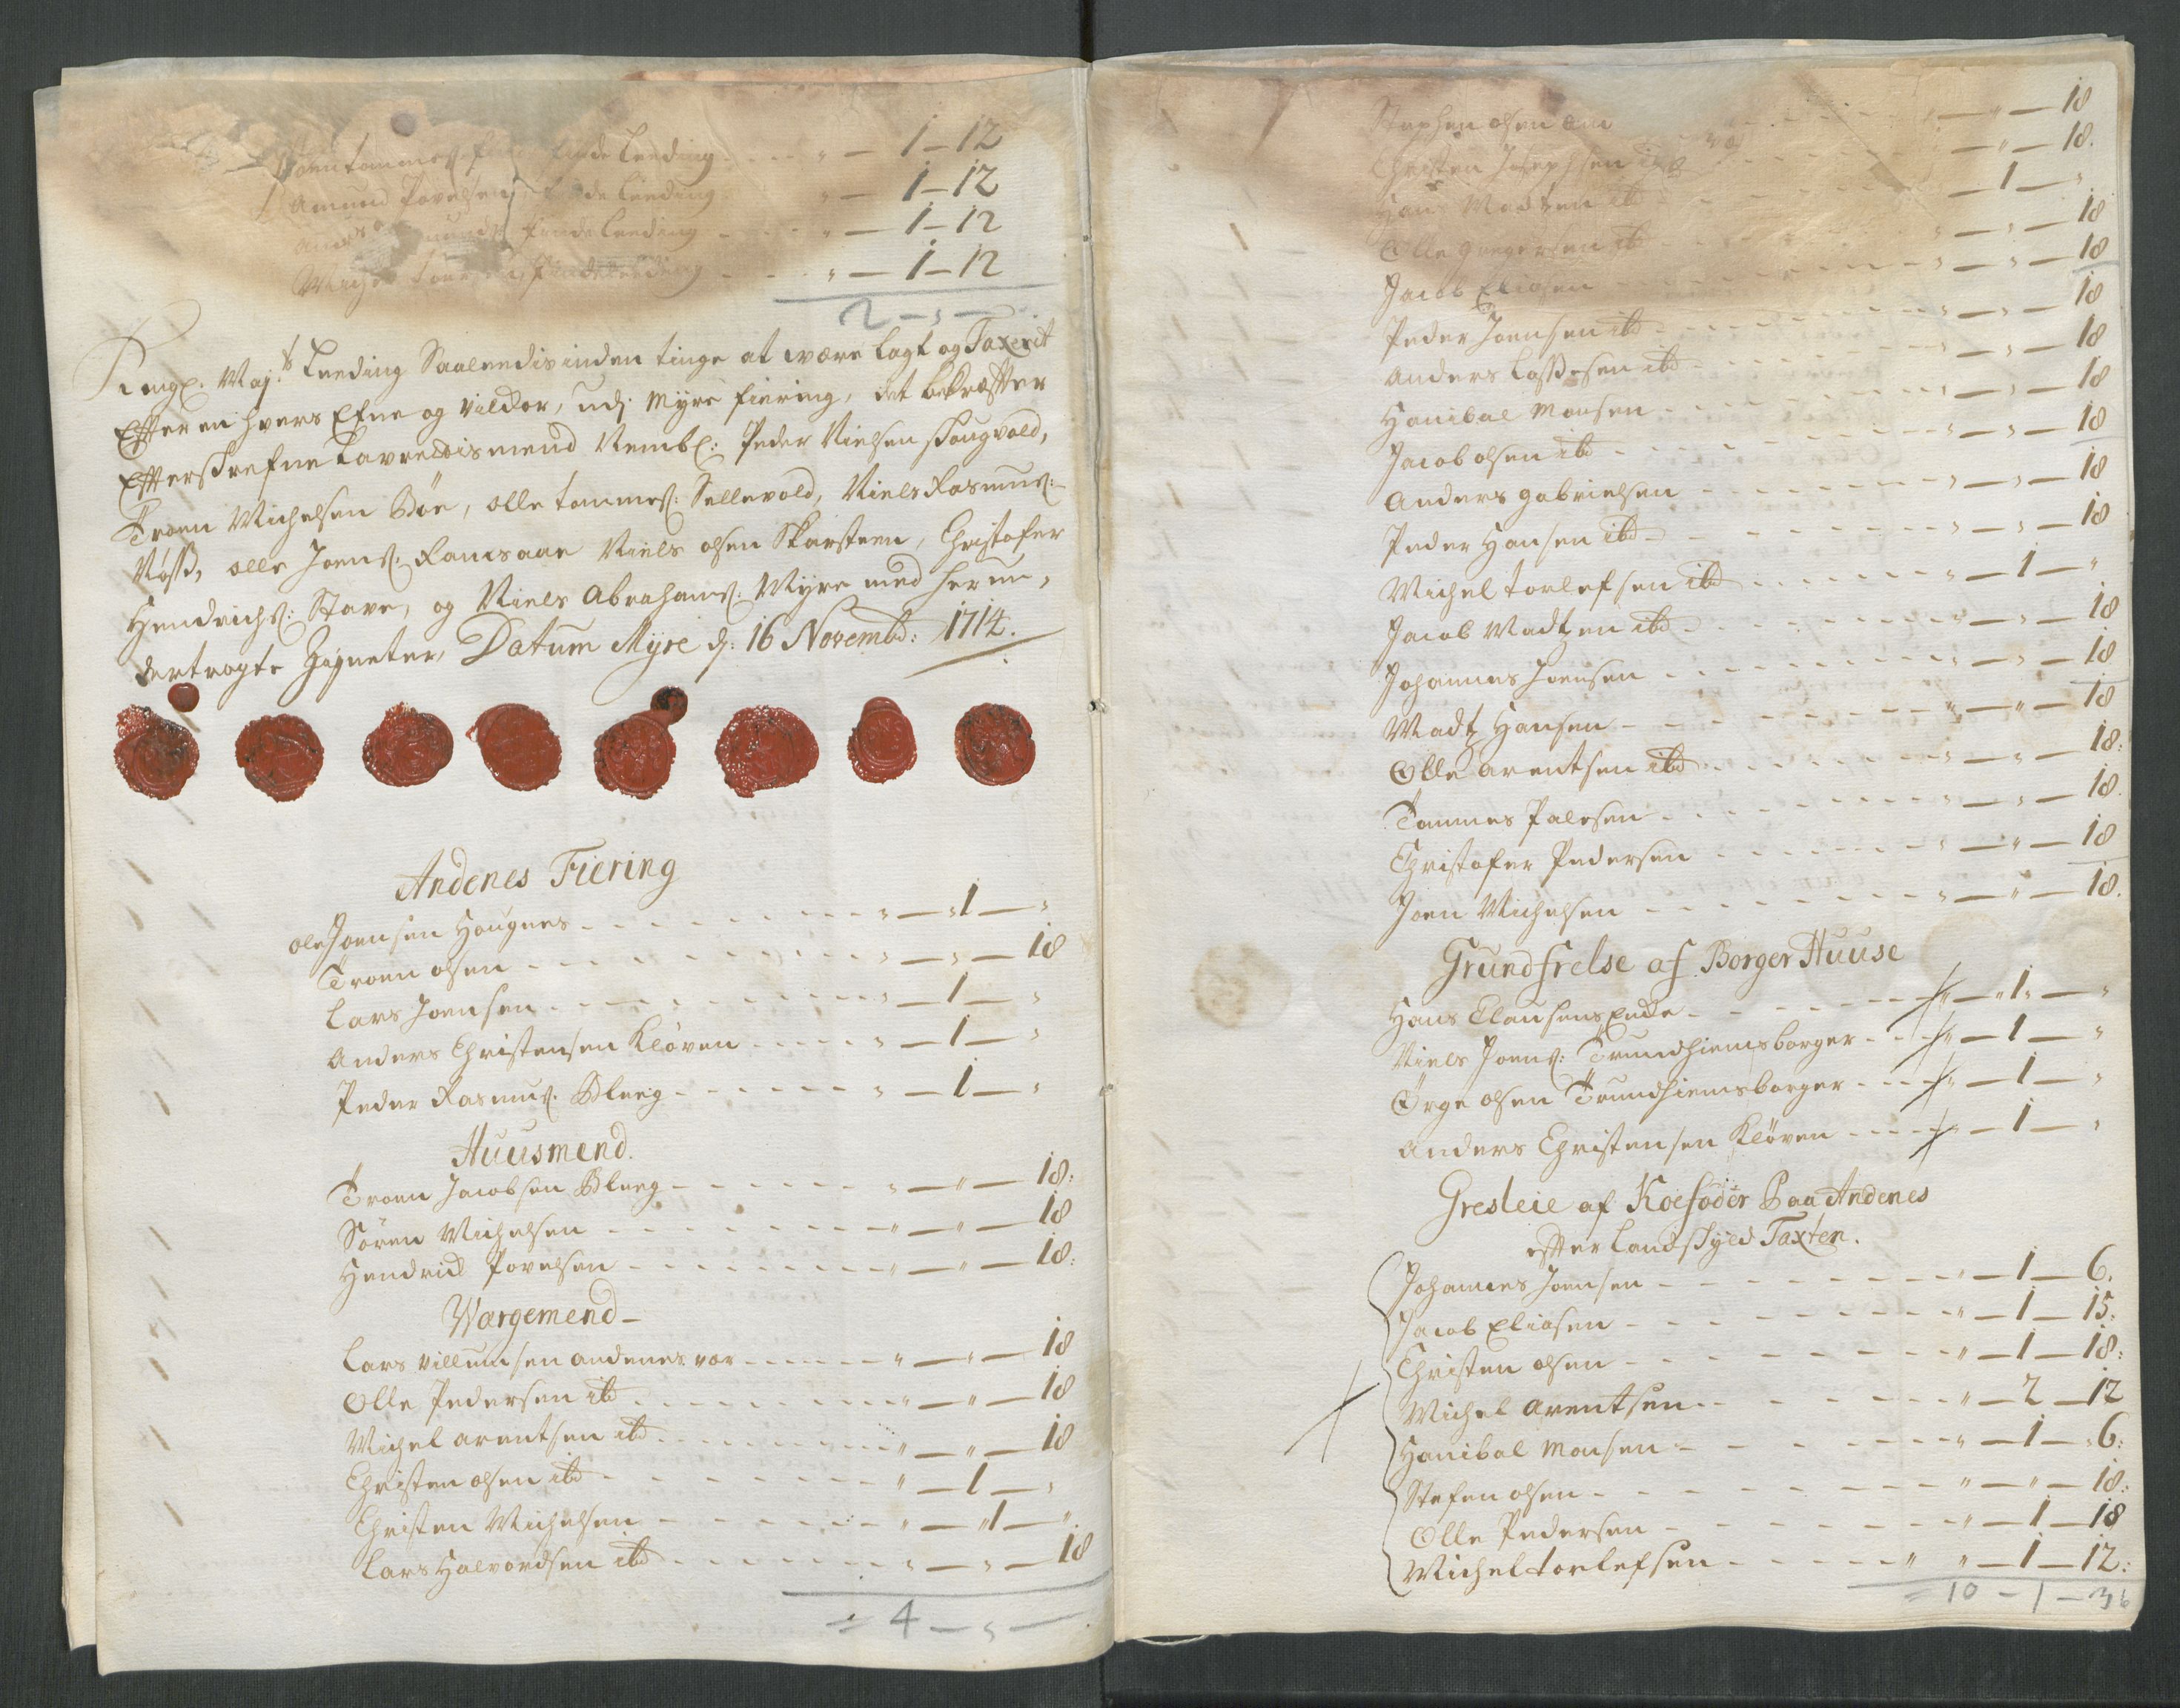 Joen tommes: finde Leeding - - - „ — 1 — 12
Amund Povelsen, finde Leeding „ — 1 — 12
finde Leeding - - - „ — 1 — 12
Michel finde Leeding - - - „ — 1 — 12
2 — „ —
Kongl. Maj:ts Leeding Saaleedis inden tinge at være lagt og Taxerit
Effter en hvers Efne og Vilckor, udj Myre fiering, det bekræffter
Effterskrefne Lavrettismend Nembl: Peder Nielsen Haugvold,
Troen Michelsen Böe, olle tommes: Sellevold, Niels Rasmus:
Nöss, olle Joens: Ramsaae Niels olsen Skarsteen, Christofer
Hendrichs: Stave, og Niels Abrahams: Myre med herun-
dertrögte Zigneter, Datum Myre d: 16 Novembd: 1714.
Andenes Fiering
ole Joensen Haugnes - - - „ — 1 — „
Troen olsen - - - „ — „ — 18
Lars Joensen - - - „ — 1 — „
Anders Christensen Klöven - - - „ — 1 — „
Peder Rasmus: Bleeg - - - „ — 1 — „
Huusmend.
Troen Jacobsen Bleeg - - - „ — „ — 18:
Sören Michelsen - - - „ — „ — 18
Hendrick Povelsen - - - „ — „ — 18:
Wærgemend -
Lars Villumsen andenes vær - - - „ — „ — 18
Olle Pedersen ibd - - - „ — „ — 18
Michel arentsen ibd - - - „ — „ — 18
Christen olsen ibd - - - „ — 1 — „
Christen Michelsen - - - „ — 1 — „
Lars Halvordsen ibd - - - „ — „ — 18
= 4 — „ —
Stephen olsen - - - „ — „ — 18
Christen Josephsen - - - — „ — 18.
Hans Madtzen ibd - - - — 1 — „
Olle Gregersen ibd - - - „ — „ — 18
Jacob Eliasen - - - „ — „ — 18
Peder Joensen ibd - - - „ — „ — 18
Anders Lassesen ibd - - - „ — „ — 18
Hanibal Monsen - - - „ — „ — 18
Jacob olsen ibd - - - „ — „ — 18
Anders gabrielsen - - - „ — „ — 18
Peder Hansen ibd - - - „ — „ — 18
Michel torlefsen ibd - - - „ — 1 — „
Jacob Madtzen ibd - - - „ — „ — 18
Johannes Joensen - - - „ — „ — 18
Madtz Hansen - - - „ — „ — 18
Olle arentsen ibd - - - „ — „ — 18:
Tommes Palesen - - - „ — „ — 18.
Christofer Pedersen - - - „ — „ — 18
Joen Michelsen - - - „ — „ — 18.
Grundfrelse af Borger Huuse
Hans Clausens Encke - - - „ — 1 — „
Niels Joens: Trundhiemsborger - - - „ — 1 — „
Örge olsen Trundhiemsborger - - - „ — 1 — „
Anders Christensen Klöven - - - „ — 1 — „
Gresleie af Koefoder Paa Andenes
effter Landskyld Taxten.
Johannes Joensen - - - „ — 1 — 6.
Jacob Eliasen - - - „ — 1 — 15:
Christen olsen - - - „ — 1 — 18:
Michel Arentsen - - - „ — 2 — 12
Hanibal Monsen - - - „ — 1 — 6:
Stefen olsen - - - „ — „ — 18:
Olle Pedersen - - - „ — 1 — 18
Michel torlefsen - - - „ „ — 1 — 12:
= 10 — 1 — 36